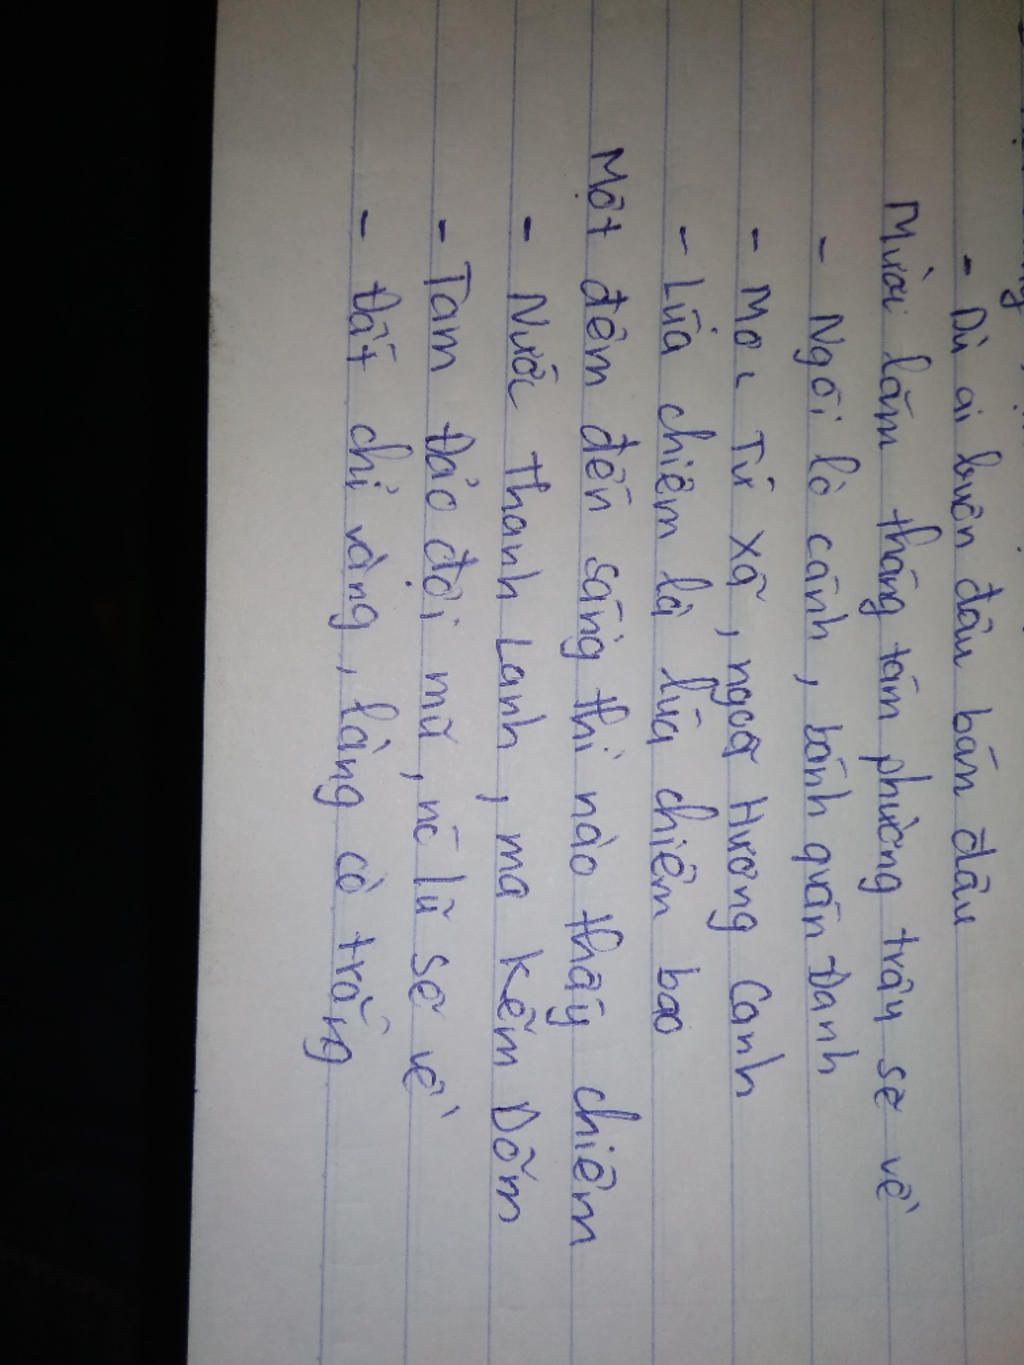 - Dù ai buôn đâu bán đâu
Mười lăm tháng tám phường trâu sẽ về
- Ngói lò cánh, bánh quán Đanh
- Mơ Tứ Xã, ngoã Hương Canh
- Lúa chiêm là lúa chiêm bao
Một đêm đến sáng thì nào thấy chiêm
- Nước Thanh Lanh, ma Kẽm Dõm
- Tam Đảo đội mũ, nc lũ sẽ về
- Đất chỉ vàng, làng cò trắng